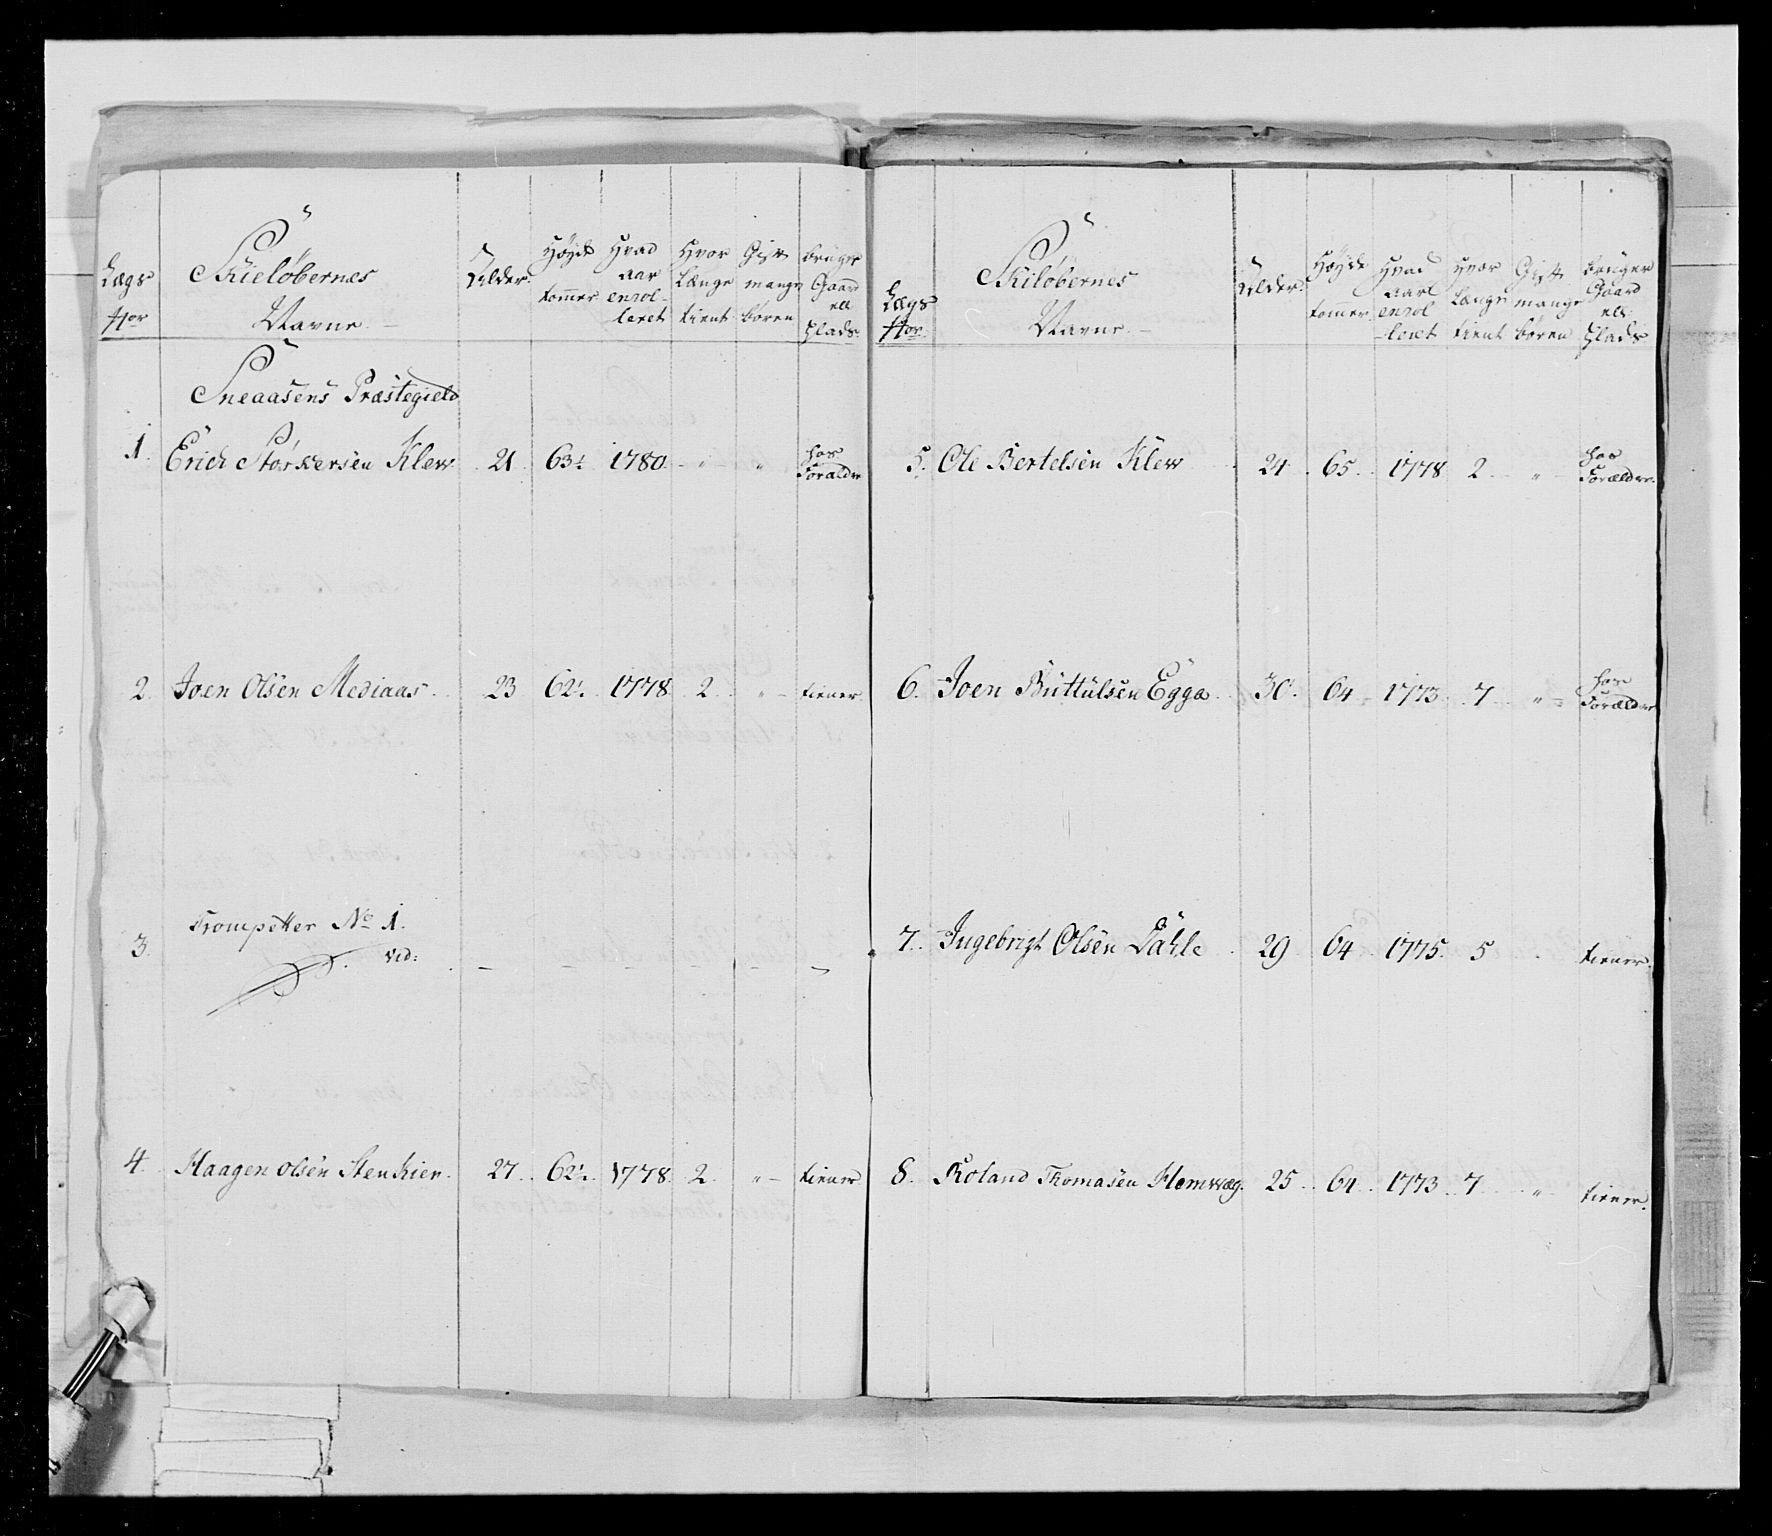 Lægs Nor | Skieløbernes Navne | Alder | Høyde tommer | Hvad aar enrolleret | Hvor Længe tient | Gift mange børen | bruger Gaard ell Plads
Sneaasens Præstegield
1. Erich Størkersen Klew 21 63½ 1780 - " - " hos Forældre
2. Joen Olsen Mediaas 23 62½ 1778 2 " tiener
3. Trompetter No 1.
vid:
4. Haagen olsen Stenkier 27 62½ 1778 2 " tiener
Lægs Nor | Skiløbernes Navne | Alder | Høyde tomer | Hvad aarl enrolleret | Hvor Længe tient | Gift mange børen | bruger Gaard ell Plads
5. Ole Bertelsen Klew 24 65 1778 2 " hos Forældre
6. Joen Buttulsen Egga 30 64 1773 7 " hos Forældre
7. Ingebrigt Olsen Dahle 29 64 1775 5 tiener
8. Roland Thomasen Hemvæg 25 64 1773 7 " tiener